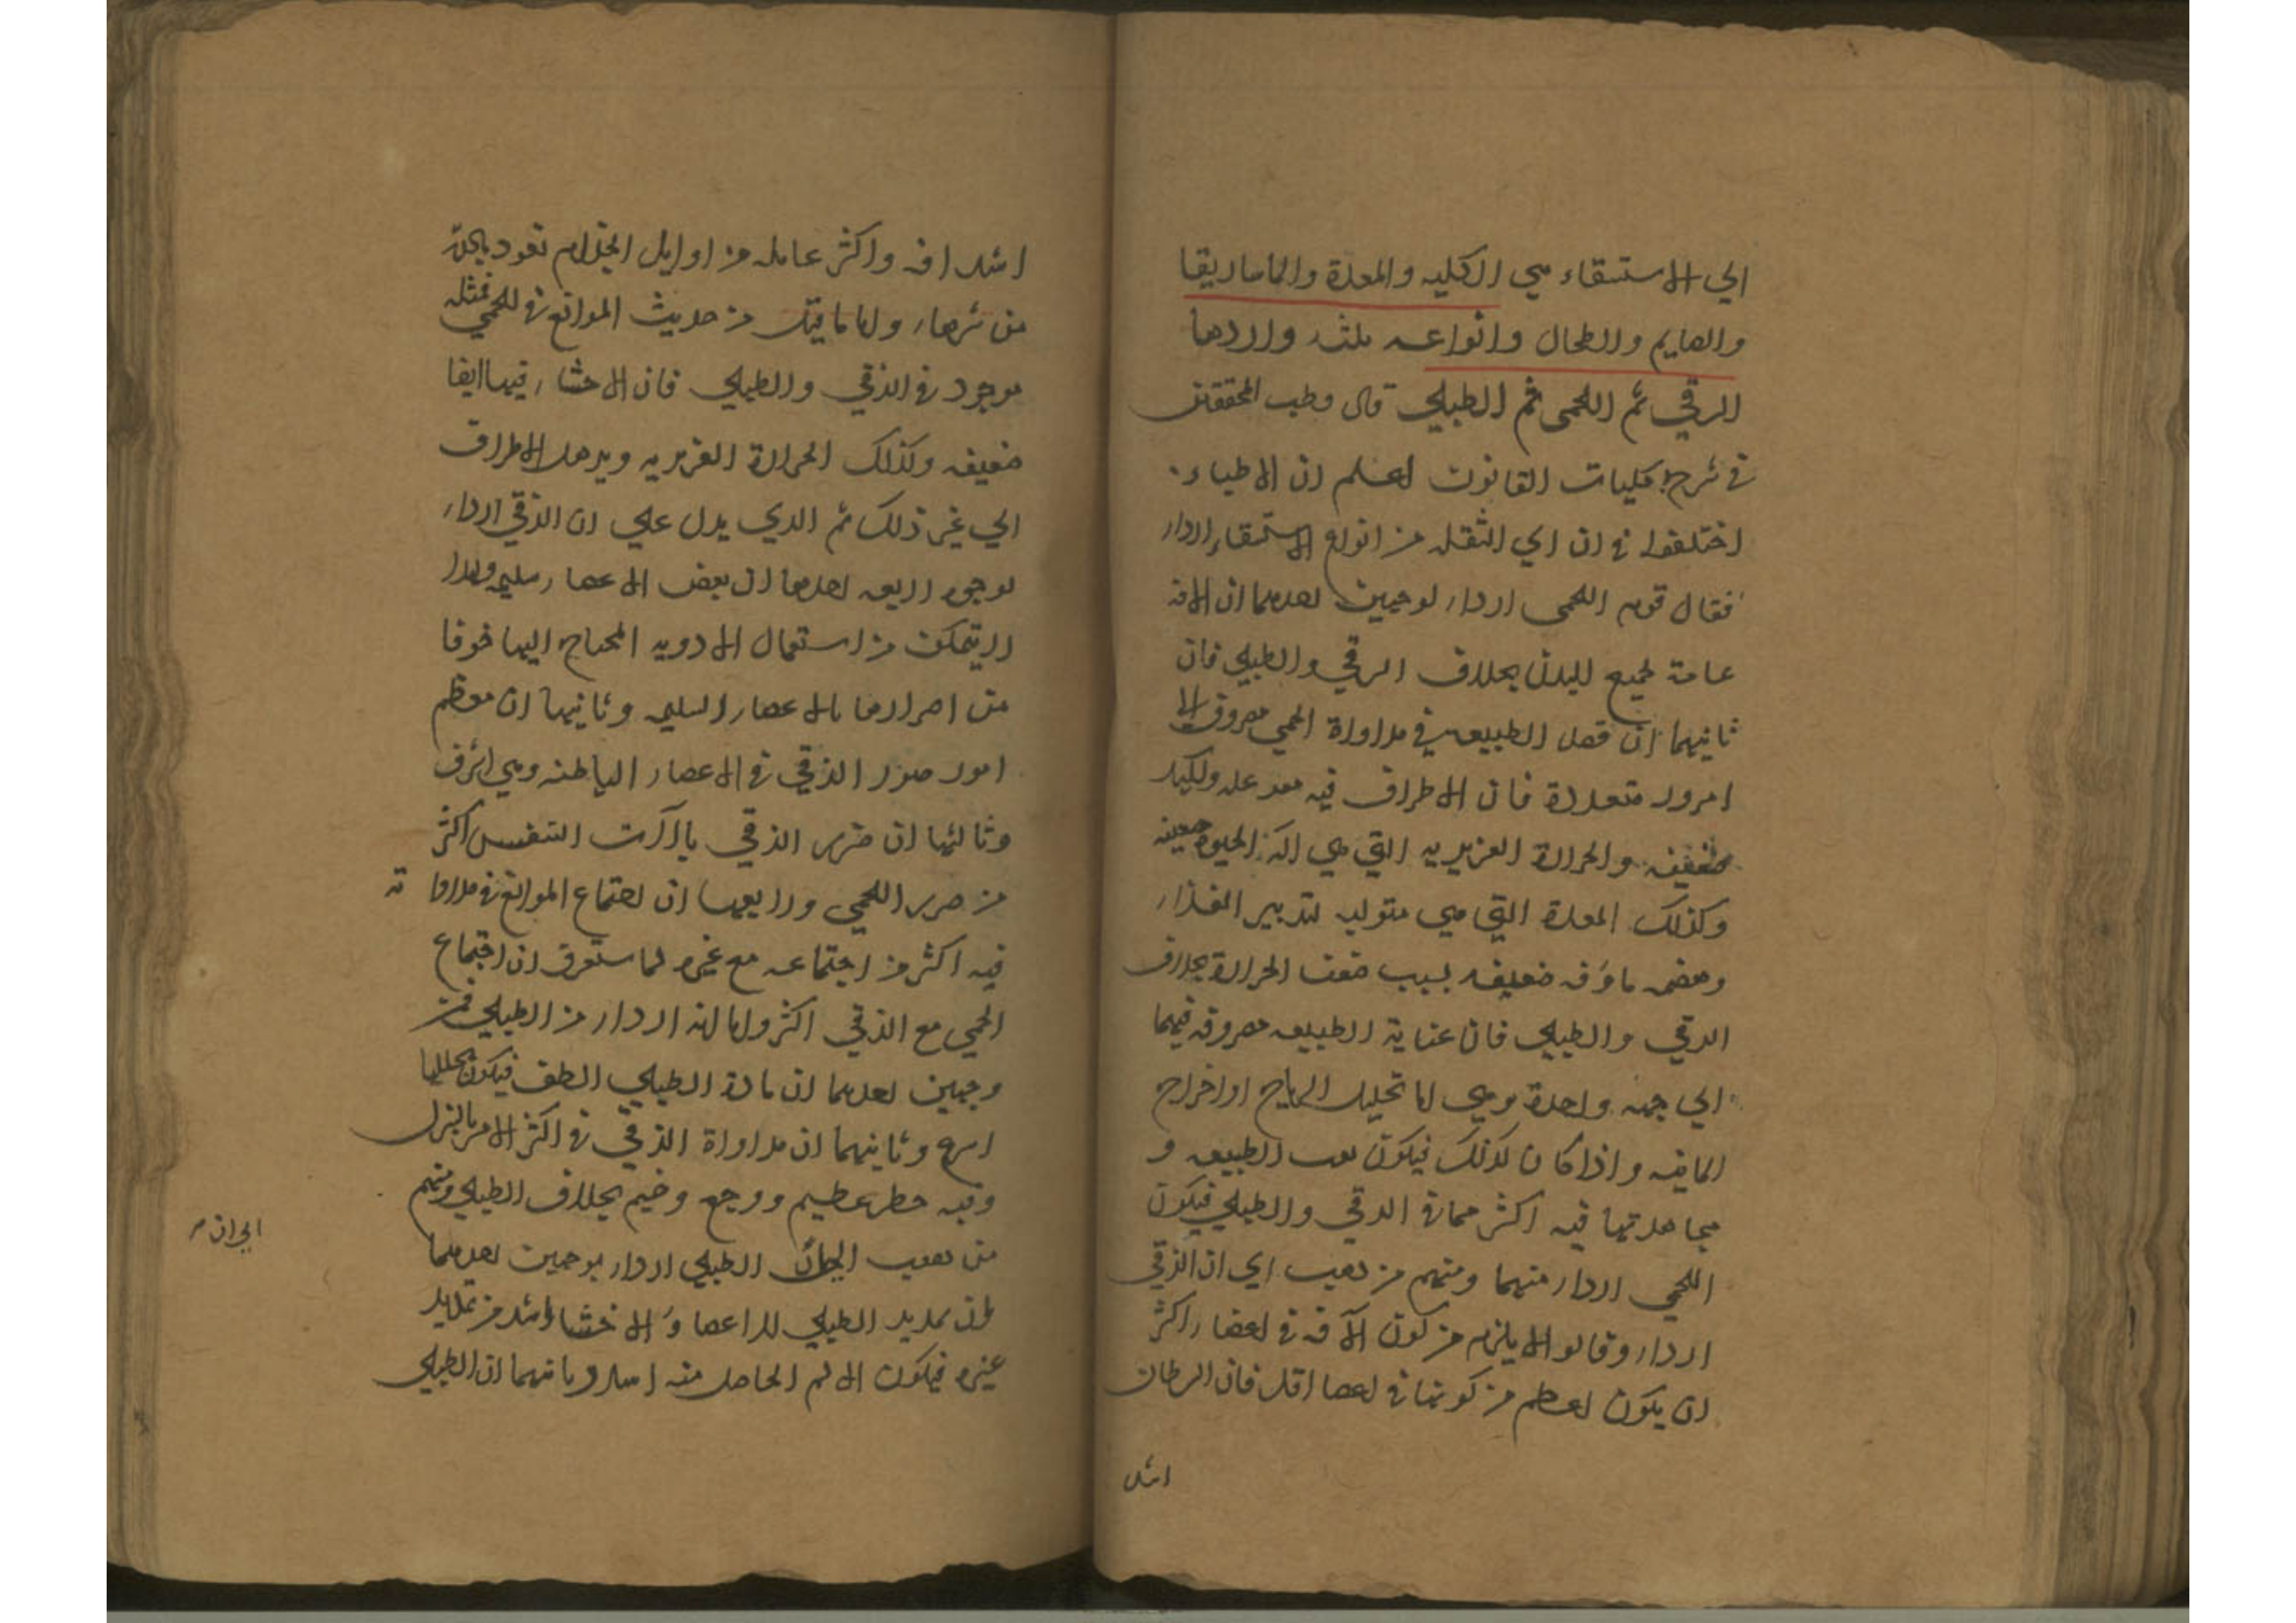 الي الاستسقاء هي الكليه والمعدة والماساريقا
والصايم والطحال وانواعه ثلثه واردءها
الزقي ثم اللحمي ثم الطبلي قال قطب المحققين
في شرح كليات القانون اعلم ان الاطباء
اختلفوا في ان اي الثقله من انواع الاستسقاء اردا
فقال قوم اللحمي اردا لوجهين احدهما ان الافه
عامة لجميع البدن بخلاف الزقي والطبلي فان
ثانيهما ان قصد الطبيعه في مداواة اللحمي مصروف الي
امور متعددة فان الاطراف فيه والكبد
ضعيفه والحرارة الغريزيه التي هي الة الحيوة ضعيفه
وكذلك المعدة التي هي متوليه لتدبير الغذاء
وهضمه ماوفه ضعيفه بسبب ضعف الحرارة بخلاف
الزقي والطبلي فان عناية الطبيعه مصروفه فيهما
الي جهه واحدة وهي اما تحليل الرياح او اخراج
المائيه واذا كان كذلك فيكون تعب الطبيعه و
مجاهدتها فيه اكثر مما في الزقي والطبلي فيكون
اللحمي اردا منهما ومنهم من ذهب الي ان الزقي
اردا وقالوا لا يلزم من كون الآفه في اعضاء اكثر
ان يكون اعظم من كونها في اعضا اقل فان السرطان
اشد
اشد افه واكثر عامله من اوايل الجذام نعوذ بالله
من شرهما واما ما قيل من حديث الموانع في اللحمي فمثله
موجود في الزقي والطبلي فان الاحشاء فيهما ايضا
ضعيفه وكذلك الحرارة الغريزيه وترهل الاطراف
الي غير ذلك ثم الذي يدل علي ان الزقي اردا
لوجوه اربعه احدها ان بعض الاعضاء سليمه ولهذا
لا يتمكن من استعمال الادويه المحتاج اليها خوفا
من اضرارها بالاعضاء السليمه وثانيها ان معظم
امور ضرر الزقي في الاعضاء الباطنه وهي اشرف
وثالثها ان ضرر الزقي بآلات التنفس اكثر
من ضرر اللحمي ورابعها ان اجتماع الموانع في مداوا ته
فيه اكثر من اجتماعه مع غيره لما ستعرف ان اجتماع
الحمي مع الزقي اكثر واما انه اردا من الطبلي فمن
وجهين احدهما ان مادة الطبلي الطف فيكون تحللها
اسرع وثانيهما ان مداواة الزقي في اكثر الامر بالبزل
وفيه خطر عظيم ووجع وخيم بخلاف الطبلي ومنهم
من ذهب الي ان الطبلي اردا بوجهين احدهما
ان تمديد الطبلي للاعضا والاحشا اشد من تمديد
غيره فيكون الالم الحاصل منه اشد وثانيهما ان الطبلي
الي ان